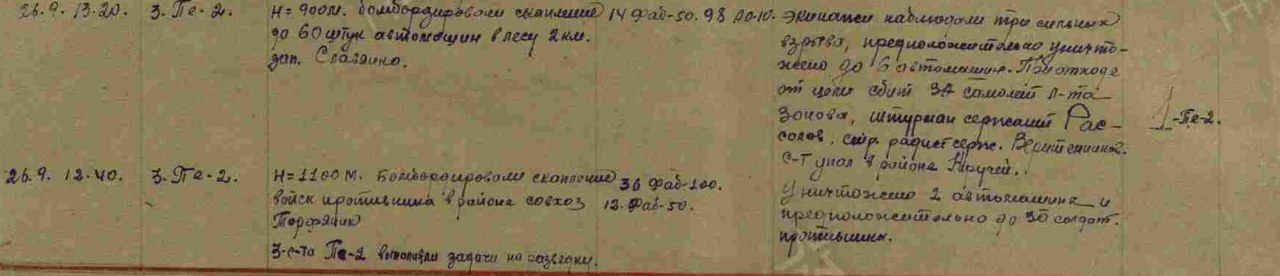 26.9. 13-20. 3. Пе-2. Н=900м. бомбордировали скопление 14 Фаб-50. 98 Ао-10. Экипажи наблюдали три сильных
до 60 штук автомашин в лесу 2 км. взрыва, предположительно уничто-
зап. Славяно. жено до 6 автомашин. При отходе
от цели сбит ЗА самолет л-та
Зонова, штурман сержант Рас-
солов, стр. радист серж. 1-Пе-2.
С-т упал в районе Кручей.
26.9. 12-40. 3. Пе-2. Н=1100м. Бомбордировали скопление 36 Фаб-100. Уничтожено 2 автомашины и
войск противника в районе совхоз 12. Фаб-50. предположительно до 30 солдат
Торфяник противника.
3-с-та Пе-2 выполняли задачи на разведку.